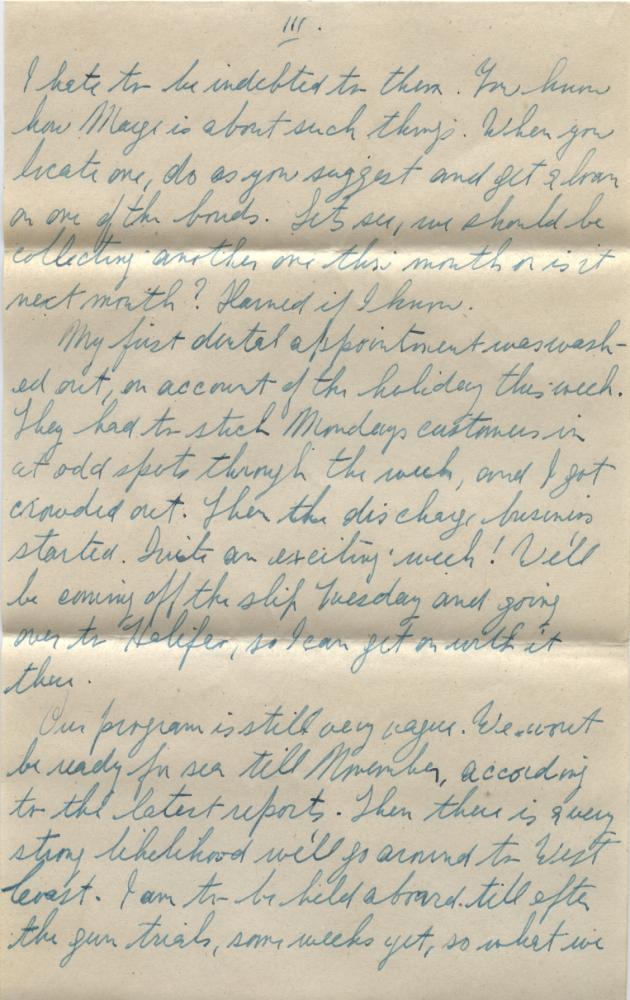 III.
I hate to be indebted to them. You know
how Marge is about such things. When you
locate one, do as you suggest and get a loan
on one of the bonds. Lets see, we should be
collecting another one this month or is it
next month? Darned if I know.
My first dental appointment was wash-
ed out, on account of the holiday this week.
They had to stick Mondays customers in
at odd spots through the week, and I got
crowded out. Then the discharge business
started. Quite an exciting week! We'll
be coming off the slip Tuesday and going
over to Halifax, so I can get on with it
then.
Our program is still very vague. We wont
be ready for sea till November, according
to the latest reports. Then there is a very
strong likelihood we'll go around to West
Coast. I am to be held aboard till after
the gun trials, some weeks yet, so what we